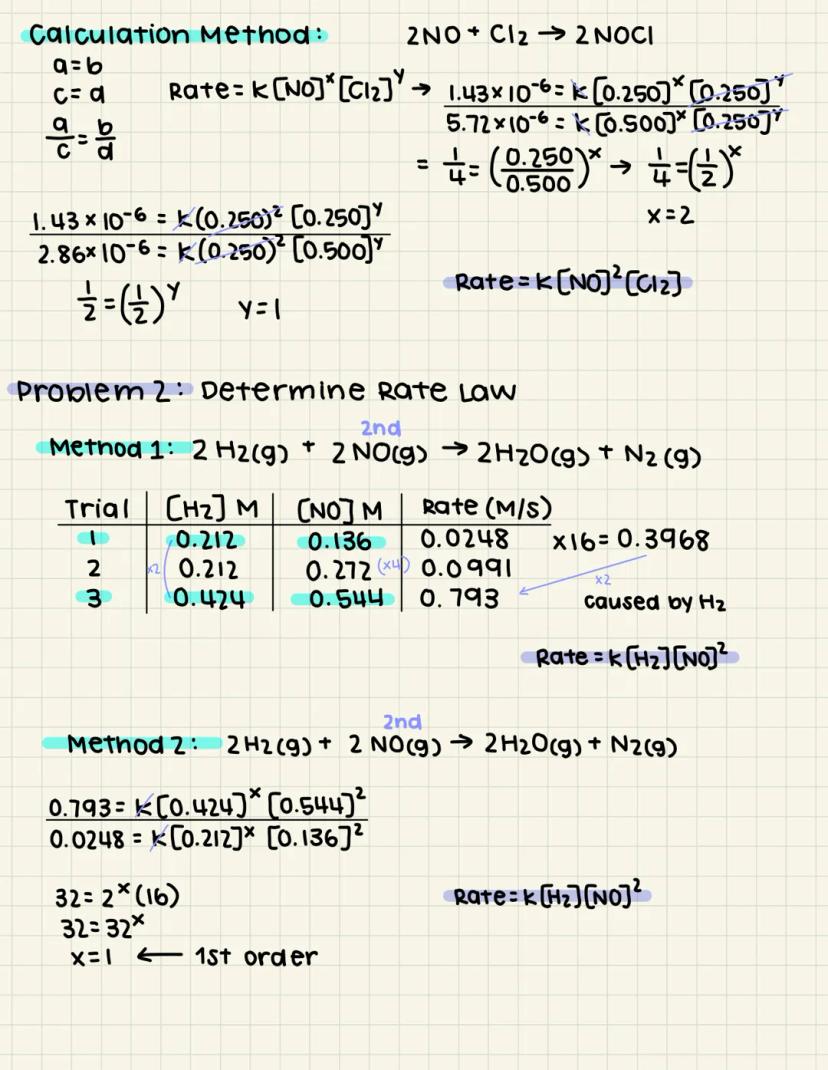 Calculation Method:
2NO + Cl₂ → 2NOCl
a=b
c=d
a/c = b/d
Rate = K[NO]ˣ[Cl₂]ʸ →
1.43×10⁻⁶ = K[0.250]ˣ [0.250]ʸ
5.72×10⁻⁶ = K[0.500]ˣ [0.250]ʸ
= 1/4 = (0.250/0.500)ˣ → 1/4 = (1/2)ˣ
x=2
1.43×10⁻⁶ = K(0.250)² [0.250]ʸ
2.86×10⁻⁶ = K(0.250)² [0.500]ʸ
1/2 = (1/2)ʸ y=1
Rate = K[NO]²[Cl₂]
Problem 2: Determine Rate Law
2nd
Method 1: 2 H₂(g) + 2 NO(g) → 2H₂O(g) + N₂(g)
Trial [H₂] M [NO] M Rate (M/S)
1 0.212 0.136 0.0248 x16 = 0.3968
2 x2 0.212 0.272 (x4) 0.0991
x2
3 0.424 0.544 0.793 caused by H₂
Rate = K[H₂][NO]²
2nd
Method 2: 2H₂(g) + 2 NO(g) → 2H₂O(g) + N₂(g)
0.793 = K[0.424]ˣ [0.544]²
0.0248 = K[0.212]ˣ [0.136]²
32 = 2ˣ(16)
Rate = K[H₂][NO]²
32 = 32ˣ
x=1 ← 1st order